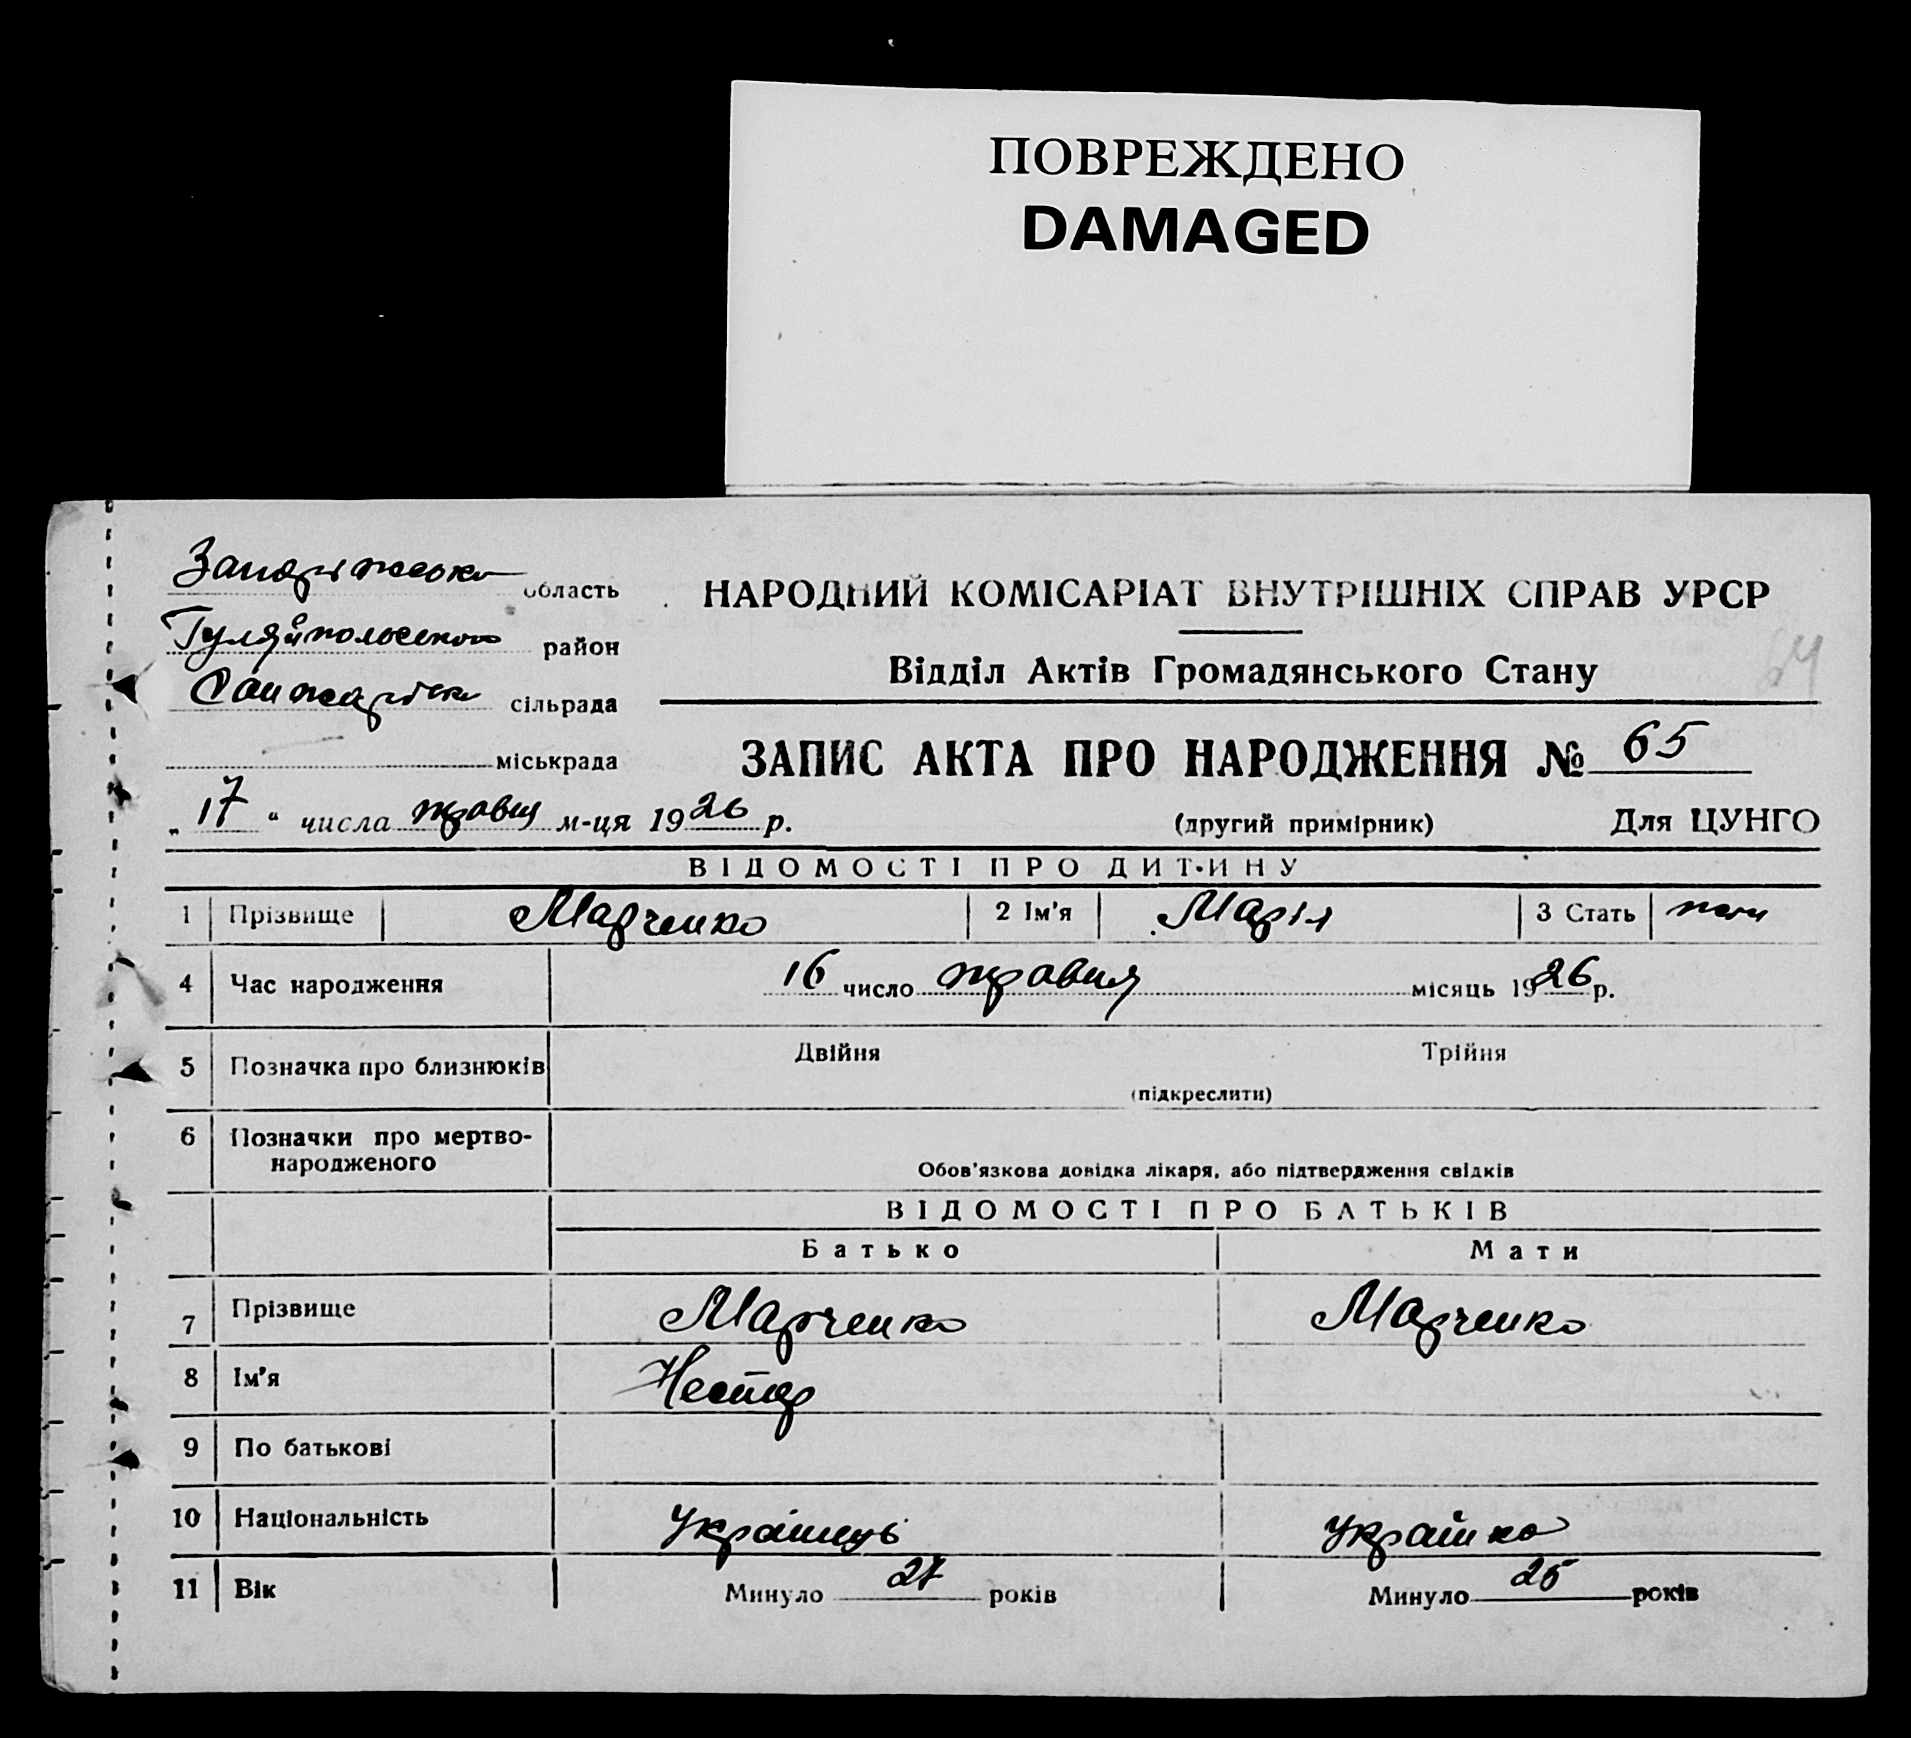 ПОВРЕЖДЕНО
DAMAGED
Запоріжська область
НАРОДНИЙ КОМІСАРІАТ ВНУТРІШНІХ СПРАВ УРСР
Гуляйпольського район
Відділ Актів Громадянського Стану
64
Санжарівська сільрада
міськрада
ЗАПИС АКТА ПРО НАРОДЖЕННЯ № 65
„17“ числа травня м-ця 1926 р.
(другий примірник) Для ЦУНГО
ВІДОМОСТІ ПРО ДИТИНУ
1 Прізвище Марченко 2 Ім'я Марія 3 Стать
4 Час народження 16 число травня місяць 1926 р.
5 Позначка про близнюків Двійня Трійня
(підкреслити)
6 Позначки про мертво-
народженого
Обов'язкова довідка лікаря, або підтвердження свідків
ВІДОМОСТІ ПРО БАТЬКІВ
Батько Мати
7 Прізвище Марченко Марченко
8 Ім'я Нестор
9 По батькові
10 Національність Українець Українка
11 Вік Минуло 27 років Минуло 25 років